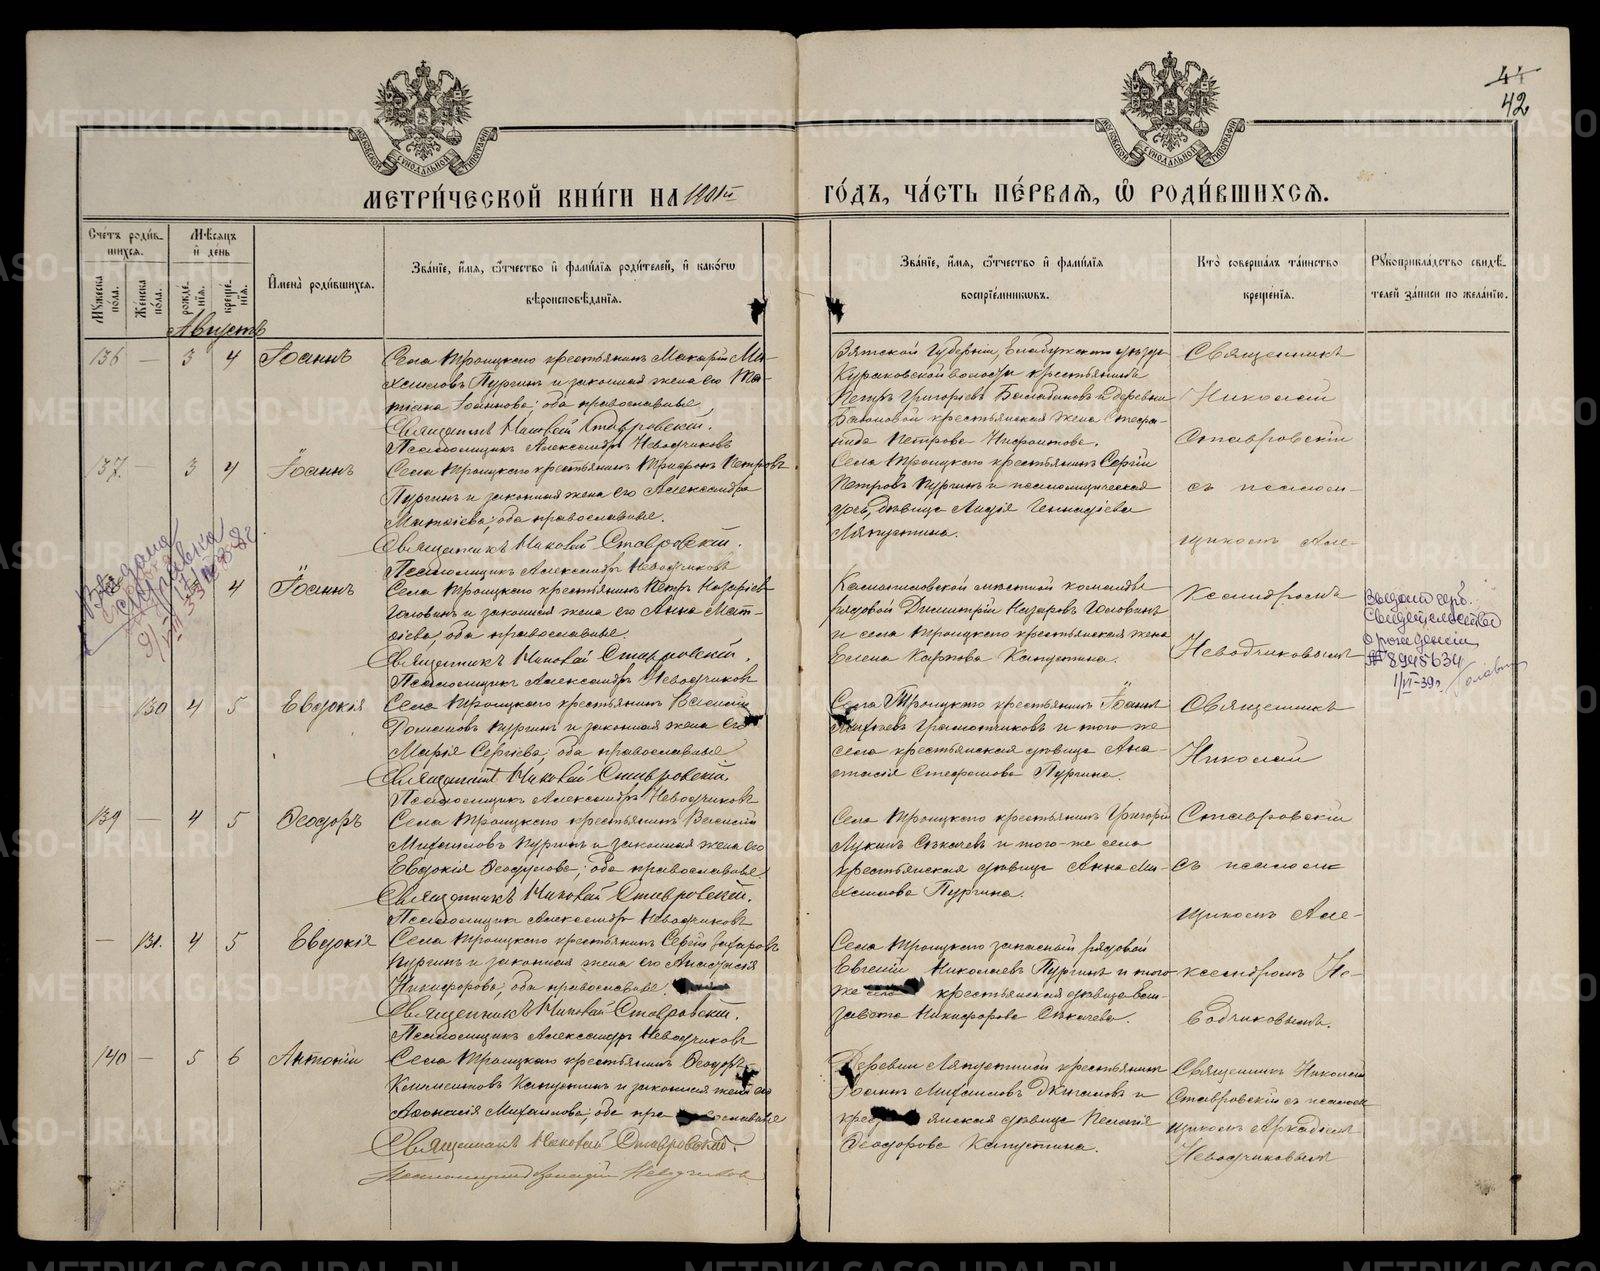 44
42
МЕТРИ́ЧЕСКОЙ КНИ́ГИ НА 1901й ГО́ДЪ, ЧА́СТЬ ПЕ́РВАЯ, Ѽ РОДИ́ВШИХСЯ.
Сче́тъ роди́в-
шихся.
Му́жеска
по́ла.
Же́нска
по́ла.
Мѣ́сяцъ
и̑ де́нь
рожде́-
нїя.
креще́-
нїя.
И̑мена̀ роди́вшихся.
Зва́нїе, и̑́мя, ѻ҆́тчество и̑ фами́лїя роди́телей, и̑ како́гѡ
вѣроисповѣ́данїя.
Зва́нїе, и̑́мя, ѻ҆́тчество и̑ фами́лїя
воспрїе́мникѡвъ.
Кто̀ соверша́лъ та́инство
креще́нїя.
Рꙋкоприкла́дство свидѣ́-
телей за́писи по жела́нїю.
Августъ
136 — 3 4 Іоаннъ
Села Троицкаго крестьянинъ Макарій Ми-
хаиловъ Пургинъ и законная жена его Та-
тіана Іоаннова; оба православные.
Священникъ Николай Ставровскій.
Псаломщикъ Александръ Неводчиковъ
Вятской губерніи, Елабужскаго уѣзда
Кураковской волости крестьянинъ
Петръ Григорьевъ Балабановъ и деревни
крестьянская жена Стефа-
нида Петрова
Священникъ
Николай
Ставровскій
137. — 3 4 Іоаннъ
Села Троицкаго крестьянинъ Трифонъ Петровъ
Пургинъ и законная жена его Александра
Матѳіева; оба православные.
Священникъ Николай Ставровскій.
Псаломщикъ Александръ Неводчиковъ
Села Троицкаго крестьянинъ Сергій
Петровъ Пургинъ и псаломщическая
дочь, дѣвица Лидія Геннадіева
Ляпустина.
съ псалом-
щикомъ Але-
Выдана
справка
4 Іоаннъ
Села Троицкаго крестьянинъ Петръ Назаріевъ
Головинъ и законная жена его Анна Мат-
ѳіева; оба православные.
Священникъ Николай Ставровскій.
Псаломщикъ Александръ Неводчиковъ
Камышловской мѣстной команды
рядовой Димитрій Назаровъ Головинъ
и села Троицкаго крестьянская жена
Елена Карпова Капустина.
ксандромъ
Неводчиковымъ
Выдано
Свидетельство
о рождении
№ 8945634
1/VI-39г.
— 130 4 5 Евдокія
Села Троицкаго крестьянинъ Василій
Романовъ Пургинъ и законная жена его
Марія Сергіева; оба православные
Священникъ Николай Ставровскій.
Псаломщикъ Александръ Неводчиковъ
Села Троицкаго крестьянинъ Іоаннъ
и того-же
села крестьянская дѣвица Ана-
стасія Стефанова Пургина.
Священникъ
Николай
139 — 4 5 Ѳеодоръ
Села Троицкаго крестьянинъ Василій
Михаиловъ Пургинъ и законная жена его
Евдокія Ѳеодулова; оба православные.
Священникъ Николай Ставровскій.
Псаломщикъ Александръ Неводчиковъ
Села Троицкаго крестьянинъ Григорій
Лукинъ Секачевъ и того-же села
крестьянская дѣвица Анна Ми-
хаилова Пургина.
Ставровскій
съ псалом
щикомъ Але-
— 131. 4 5 Евдокія
Села Троицкаго крестьянинъ Сергій Захаровъ
Пургинъ и законная жена его Анастасія
Никифорова; оба православные.
Священникъ Николай Ставровскій.
Псаломщикъ Александръ Неводчиковъ
Села Троицкаго запасный рядовой
Евгеній Николаевъ Пургинъ и того-
же крестьянская дѣвица Ели-
завета Никифорова Секачева.
ксандромъ Не-
водчиковымъ.
140 — 5 6 Антоній
Села Троицкаго крестьянинъ Ѳеодоръ
Климентовъ Капустинъ и законная жена его
Аѳанасія Михаилова; оба православные
Священникъ Николай Ставровскій.
Псаломщикъ Аркадій Неводчиковъ
Деревни Ляпустиной крестьянинъ
Іоаннъ Михаиловъ и
крестьянская дѣвица Пелагія
Ѳеодорова Капустина.
Священникъ Николай
Ставровскій съ псалом
щикомъ Аркадіемъ
Неводчиковымъ